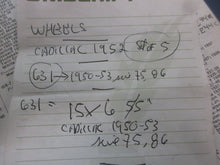 WHEELS
CADILLAC 1952 SET OF 5
631 → 1950-53 75,86
631 = 15x6 55"
CADILLAC 1950-53
75,86